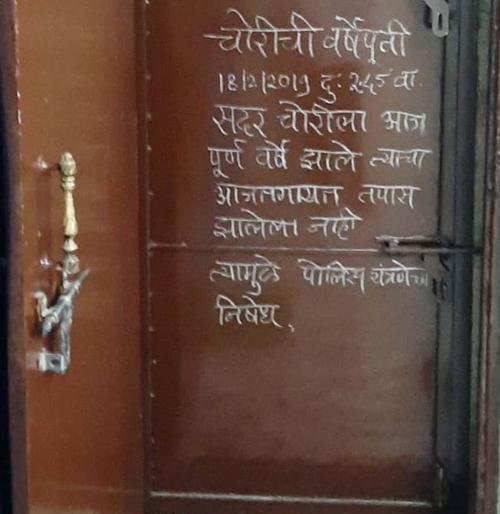 चोरीची वर्षपूर्ती
18/2/2019 दु: 2.45 वा.
सदर चोरीला आज
पूर्ण वर्ष झाले त्याचा
आजतागायत तपास
झालेला नाही
त्यामुळे पोलिस यंत्रणेचा
निषेध.